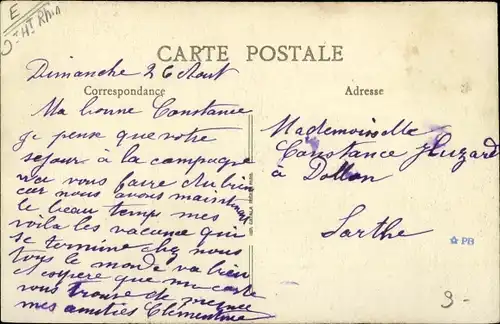 E
Ht Rhin
CARTE POSTALE
Dimanche 26 Aout
Correspondance
Adresse
Ma bonne Constance
je pense que votre
sejour à la campagne
va vous faire du bien
car nous avons maintenant
le beau temps mes
voila les vacance qui
se termine chez nous
tous le monde va bien
j'espere que ma carte
vous trouve de
mes amitiés Clémentine
Mademoiselle
Constance Huzard
à Dollon
Sarthe
PB
3-